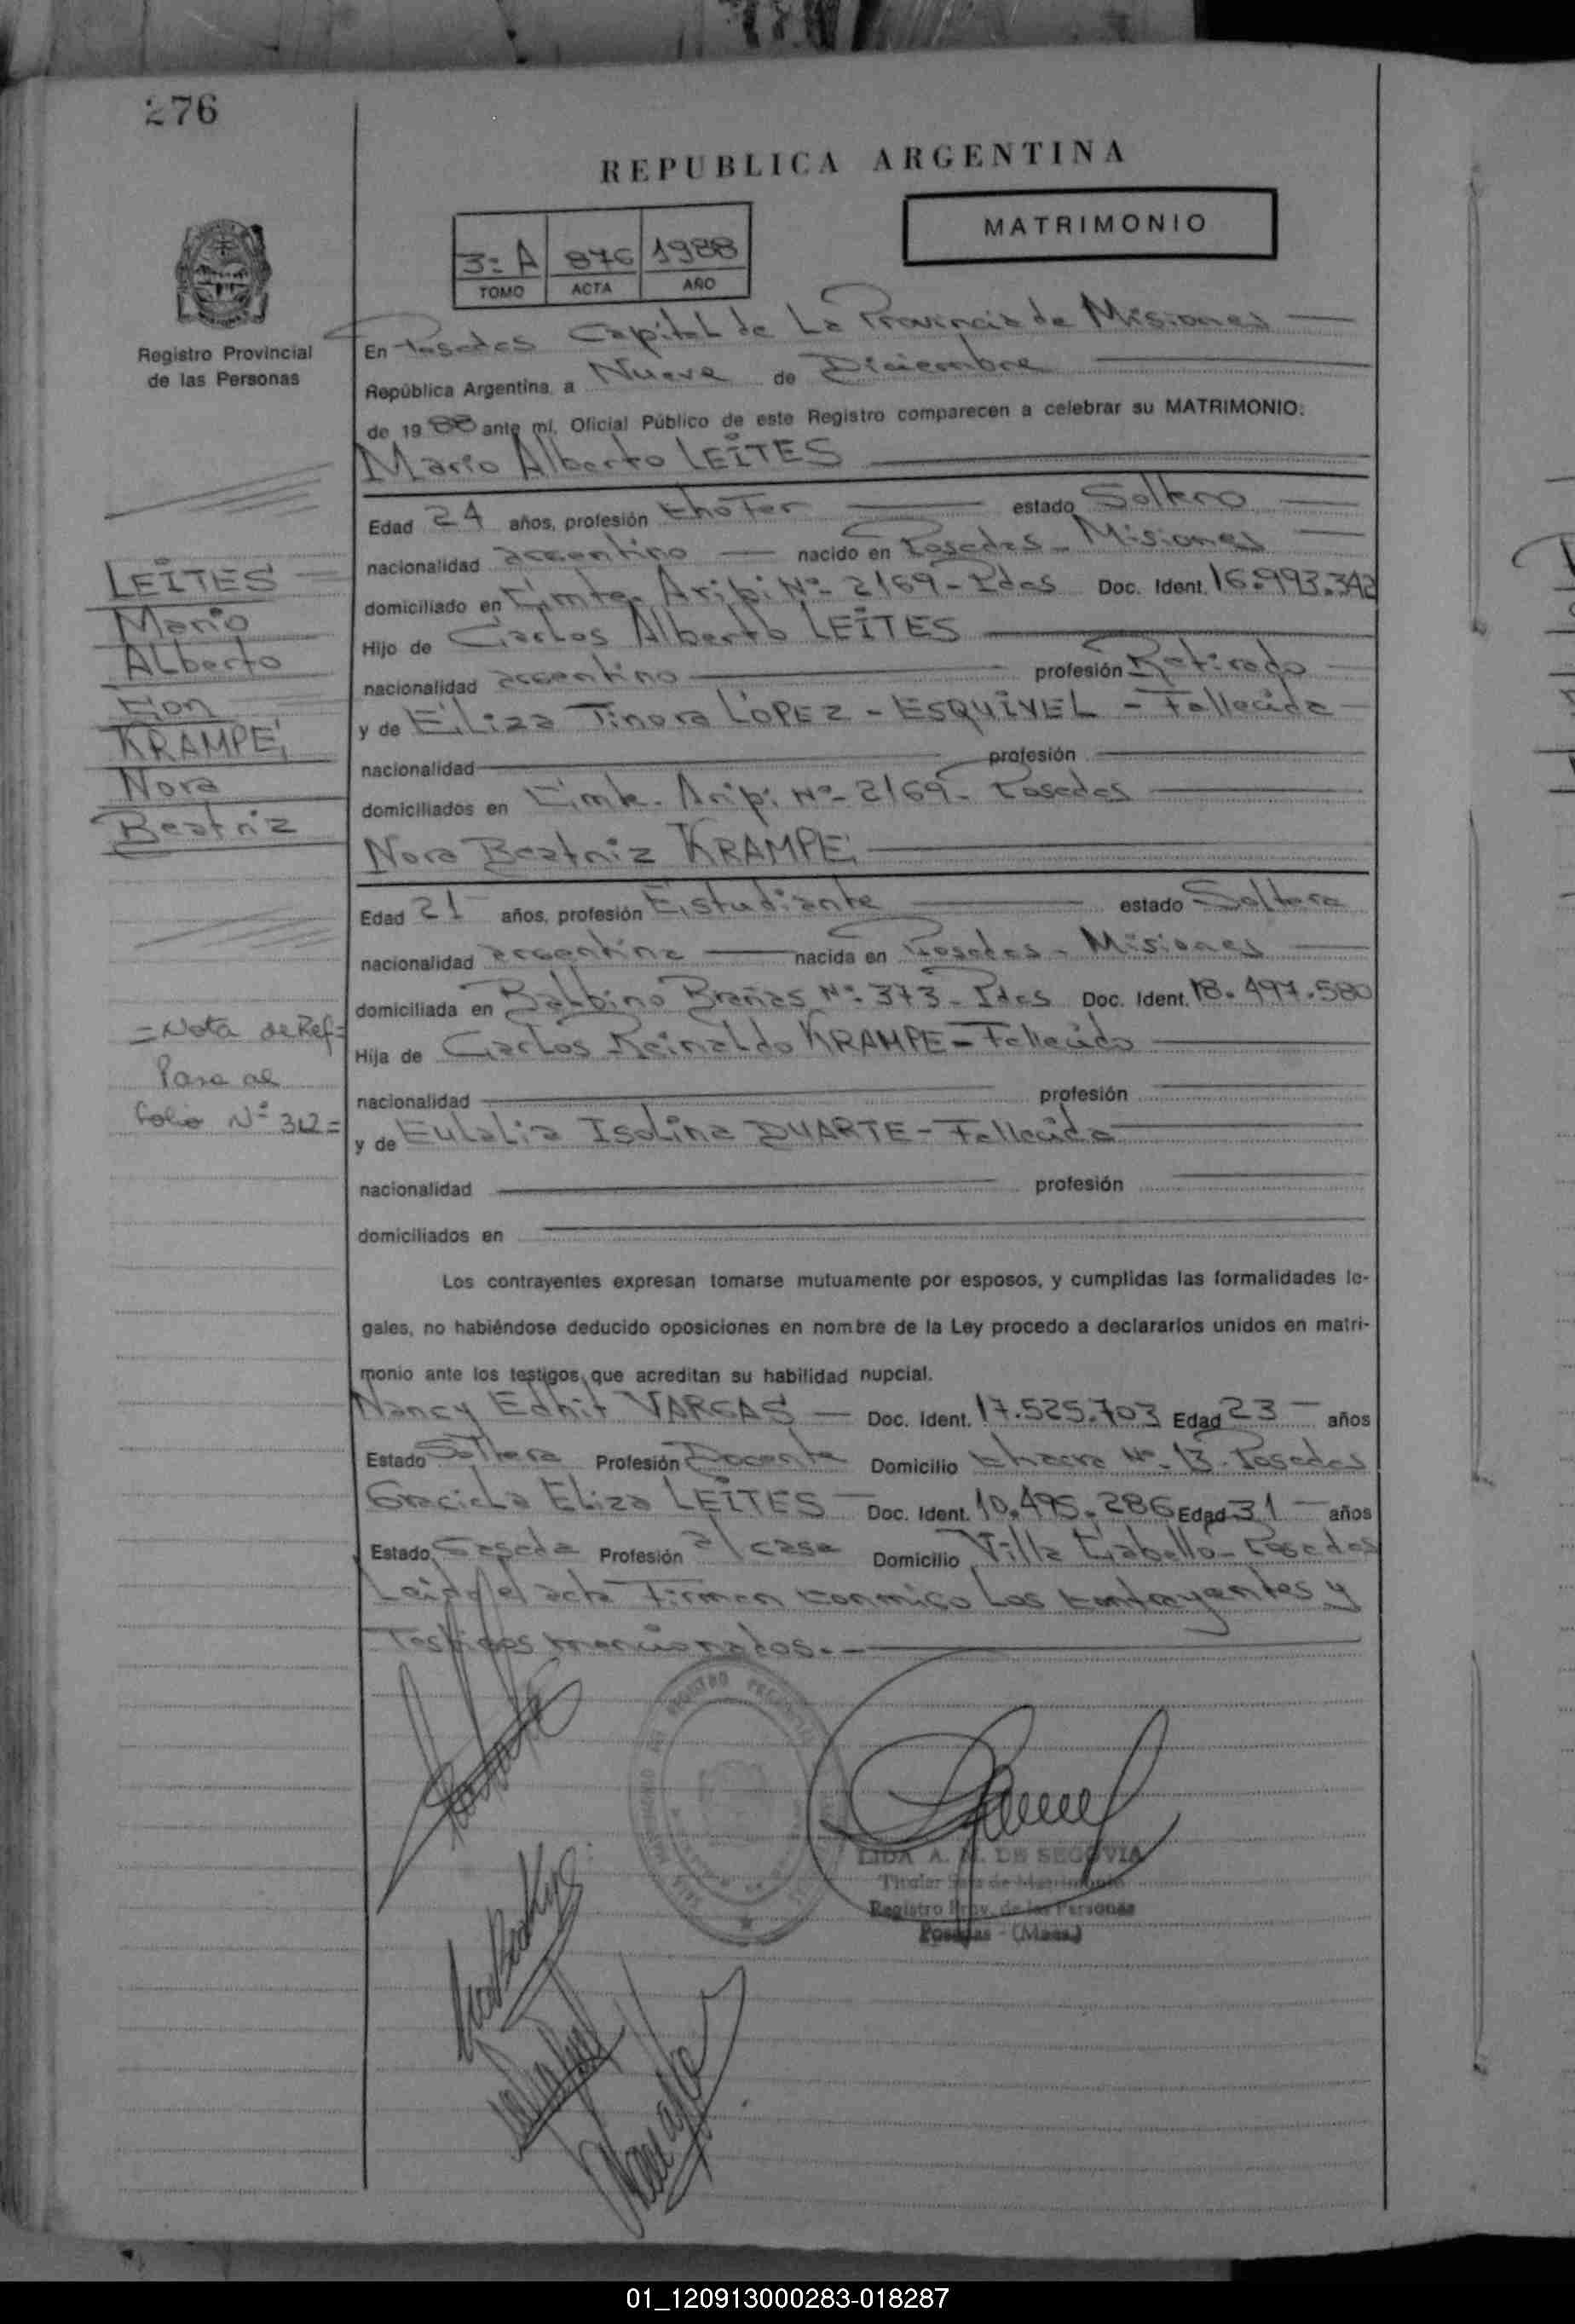 276
REPUBLICA ARGENTINA
MATRIMONIO
3= A 876 1988
TOMO ACTA AÑO
Registro Provincial
de las Personas
En Posadas Capital de La Provincia de Misiones
República Argentina, a Nueve de Diciembre
de 1988 ante mí, Oficial Público de este Registro comparecen a celebrar su MATRIMONIO:
Mario Alberto LEITES
Edad 24 años, profesión Chofer estado Soltero
nacionalidad argentino nacido en Posadas - Misiones
domiciliado en Nº- 2169 - Pdas Doc. Ident. 16.993.342
Hijo de Carlos Alberto LEITES
nacionalidad argentino profesión Retirado
y de Eliza LOPEZ - ESQUIVEL - Fallecida
nacionalidad profesión
domiciliados en Nº- 2169 - Posadas
Nora Beatriz KRAMPE
Edad 21 años, profesión Estudiante estado Soltera
nacionalidad argentina nacida en Posadas - Misiones
domiciliada en Balbino Brañas Nº- 373 - Pdas Doc. Ident. 18.497.580
Hija de Carlos Reinaldo KRAMPE - Fallecido
nacionalidad profesión
y de Eulalia Isolina DUARTE - Fallecida
nacionalidad profesión
domiciliados en
LEITES
Mario
Alberto
Con
KRAMPE
Nora
Beatriz
= Nota de Ref =
Pasa al
folio Nº 312 =
Los contrayentes expresan tomarse mutuamente por esposos, y cumplidas las formalidades le-
gales, no habiéndose deducido oposiciones en nombre de la Ley procedo a declararlos unidos en matri-
monio ante los testigos, que acreditan su habilidad nupcial.
Nancy Edhit VARGAS Doc. Ident. 17.525.703 Edad 23 años
Estado Soltera Profesión Docente Domicilio Chacra Nº- 13 - Posadas
Graciela Eliza LEITES Doc. Ident. 10.495.286 Edad 31 años
Estado Casada Profesión a/ casa Domicilio Villa Cabello - Posadas
Leida el acta Firman conmigo Los contrayentes y
Testigos mencionados.-
LIDA A. M. DE SEGOVIA
Titular Secc de Matrimonio
Registro Prov. de las Personas
Posadas - (Mnes.)
01_120913000283-018287